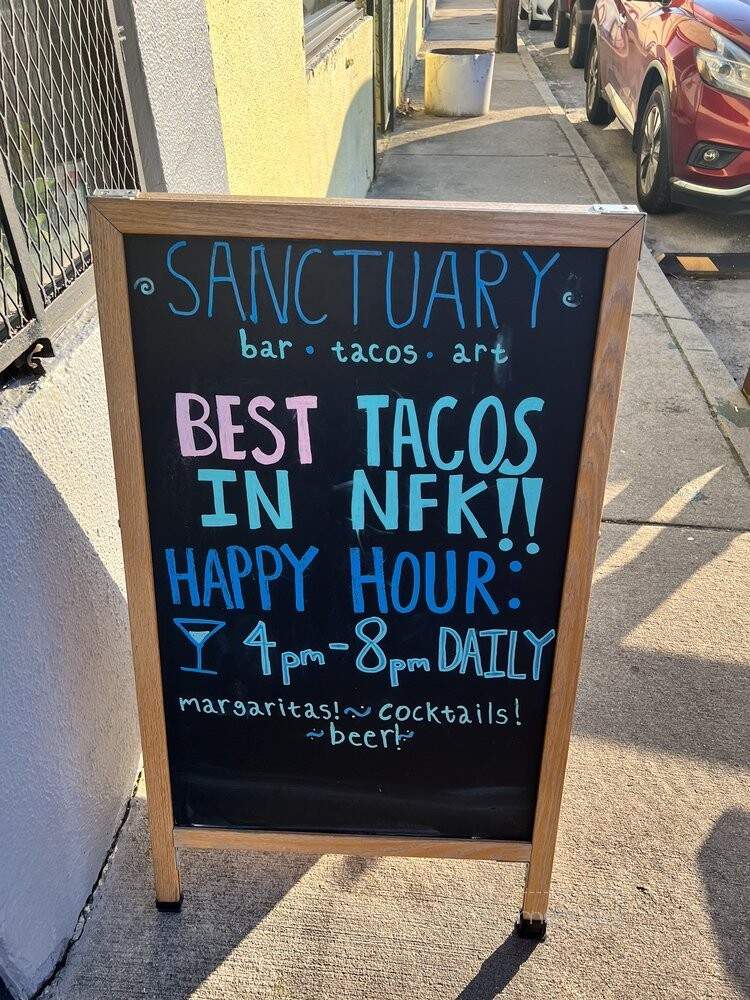 SANCTUARY
bar • tacos • art
BEST TACOS
IN NFK!!
HAPPY HOUR:
4pm-8pm DAILY
margaritas! ~ cocktails!
~beer!~